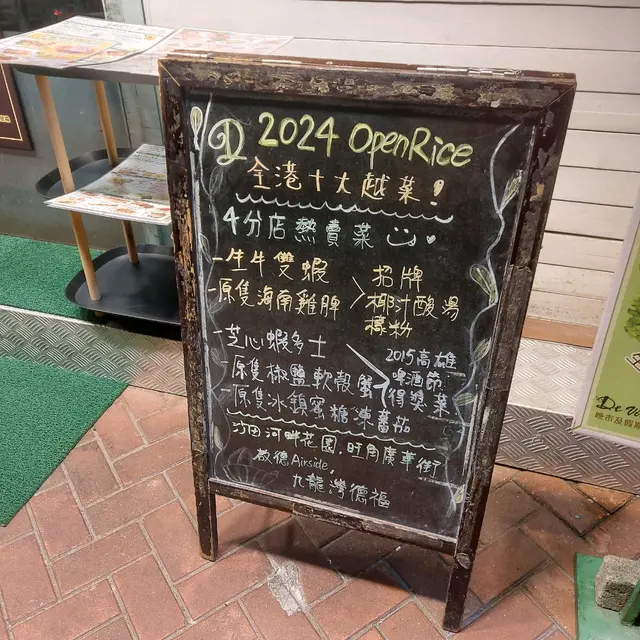 D 2024 OpenRice
全港十大越菜！
4分店熱賣菜
一生牛雙蝦
一原隻海南雞脾
招牌
椰汁酸湯
檬粉
一芝心蝦多士
一原隻椒鹽軟殼蟹
一原隻冰鎮蜜糖凍蕃茄
2015高雄
啤酒節
得獎菜
沙田河畔花園, 旺角廣華街
啟德Airside,
九龍灣德福
De Vi
晚市及假期